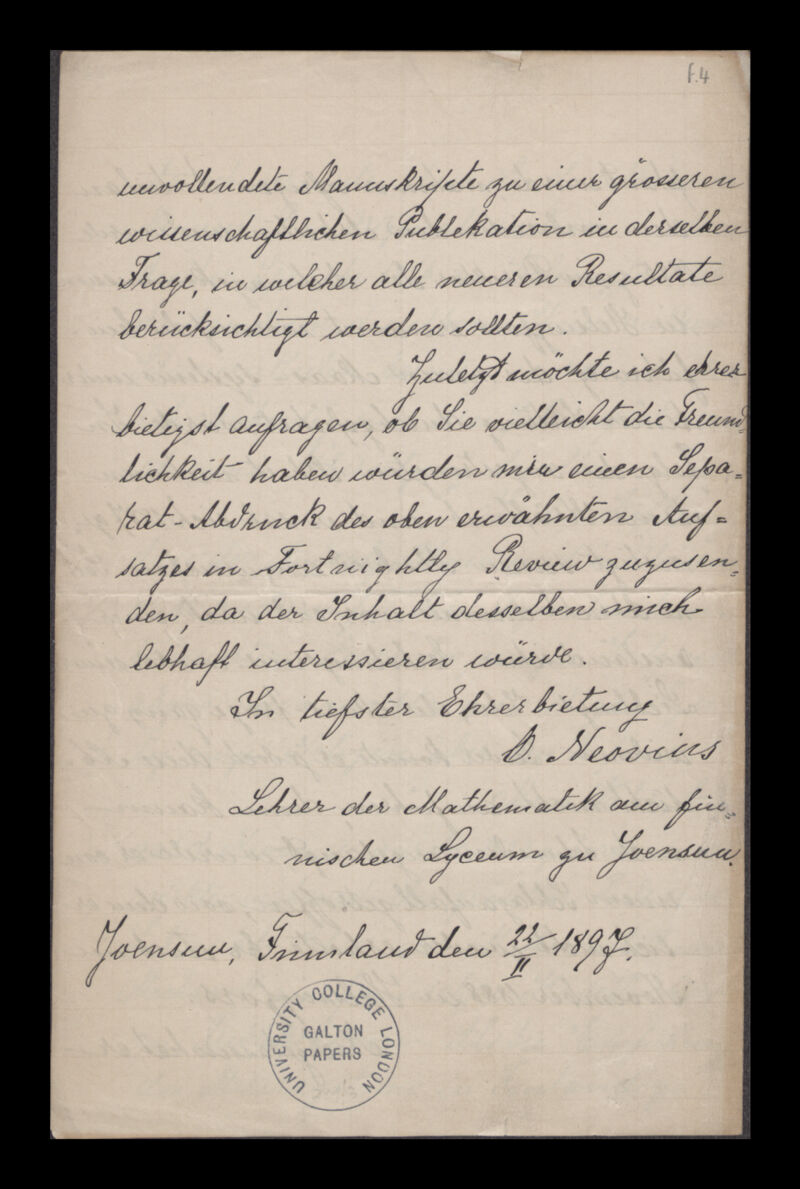 f.4
unvollendete Manuskripte zu einer grösseren
wissenschaftlichen Publikation in derselben
Frage, in welcher alle neueren Resultate
berücksichtigt werden sollten.
Zuletzt möchte ich ehrer
bietigst anfragen, ob Sie vielleicht die Freund-
lichkeit haben würden mir einen Sepa=
rat-Abdruck des oben erwähnten Auf=
satzes in Fortnightly Review zuzusen=
den, da der Inhalt desselben mich
lebhaft interessieren würde.
In tiefster Ehrerbietung
O. Neovius
Lehrer der Mathematik am fin=
nischen Lyceum zu Joensuu.
Joensuu, Finnland den 22/II 1897.
UNIVERSITY COLLEGE LONDON
GALTON
PAPERS